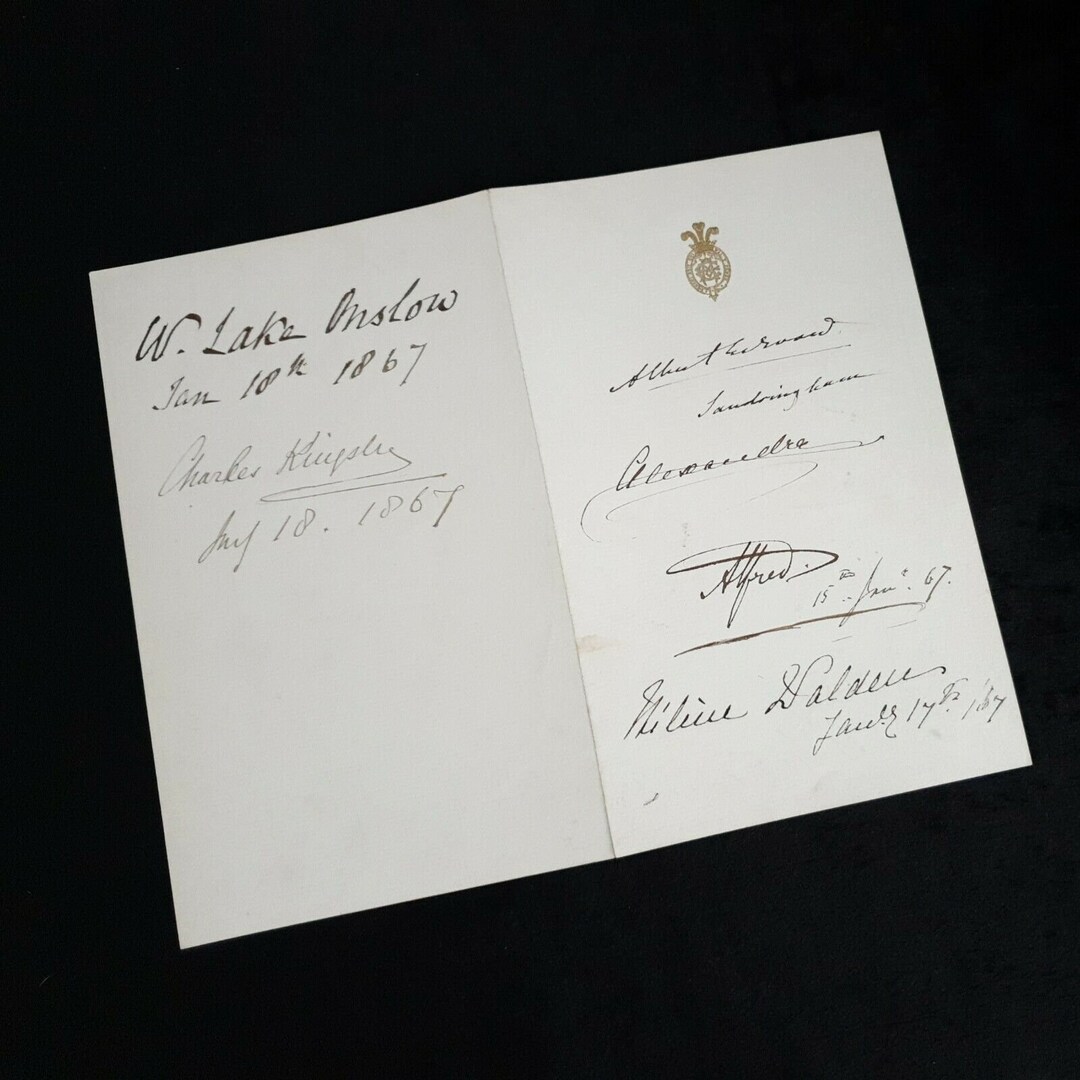 W. Lake Onslow
Jan 18th 1867
Charles Kingsley
Jany 18. 1867
Albert Edward
Sandringham
Alexandra
Alfred.
15th Jany. 67.
Walden
Jany 17th /67